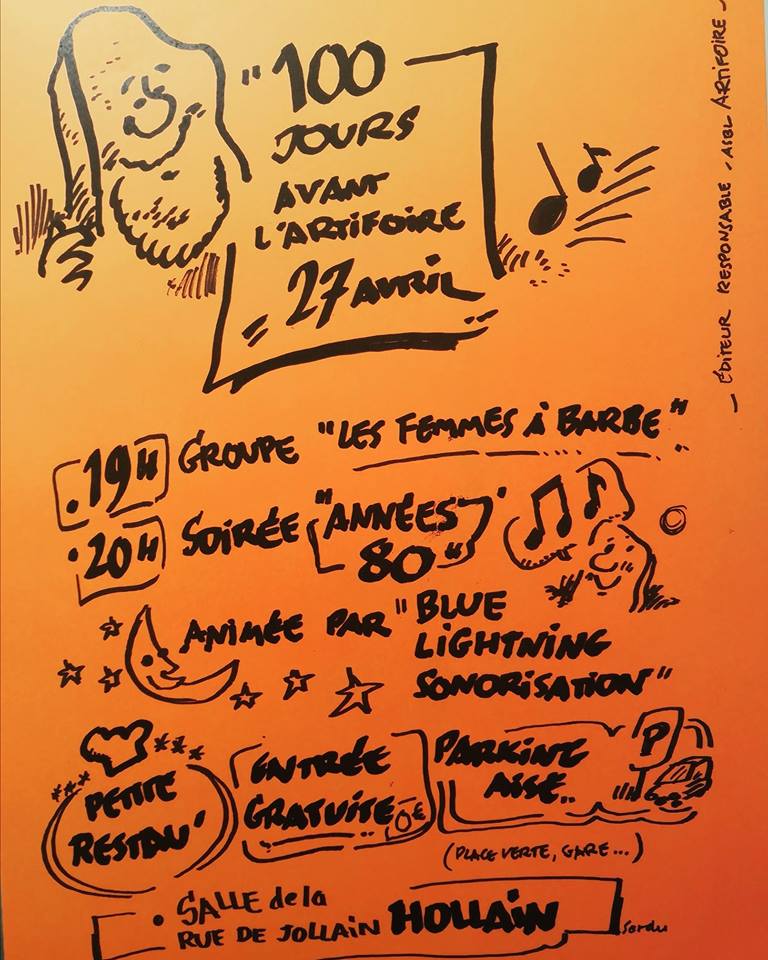 "100
JOURS
AVANT
L'ARTIFOIRE
27 AVRIL
— ÉDITEUR RESPONSABLE - ASBL ARTIFOIRE —
.19H GROUPE "LES FEMMES À BARBE"
.20H SOIRÉE "ANNÉES
80"
ANIMÉE PAR "BLUE
LIGHTNING
SONORISATION"
PETITE
RESTAU'
ENTRÉE
GRATUITE
0€
PARKING
AISÉ..
P
(PLACE VERTE, GARE...)
• SALLE de la
RUE DE JOLLAIN HOLLAIN
Serdu